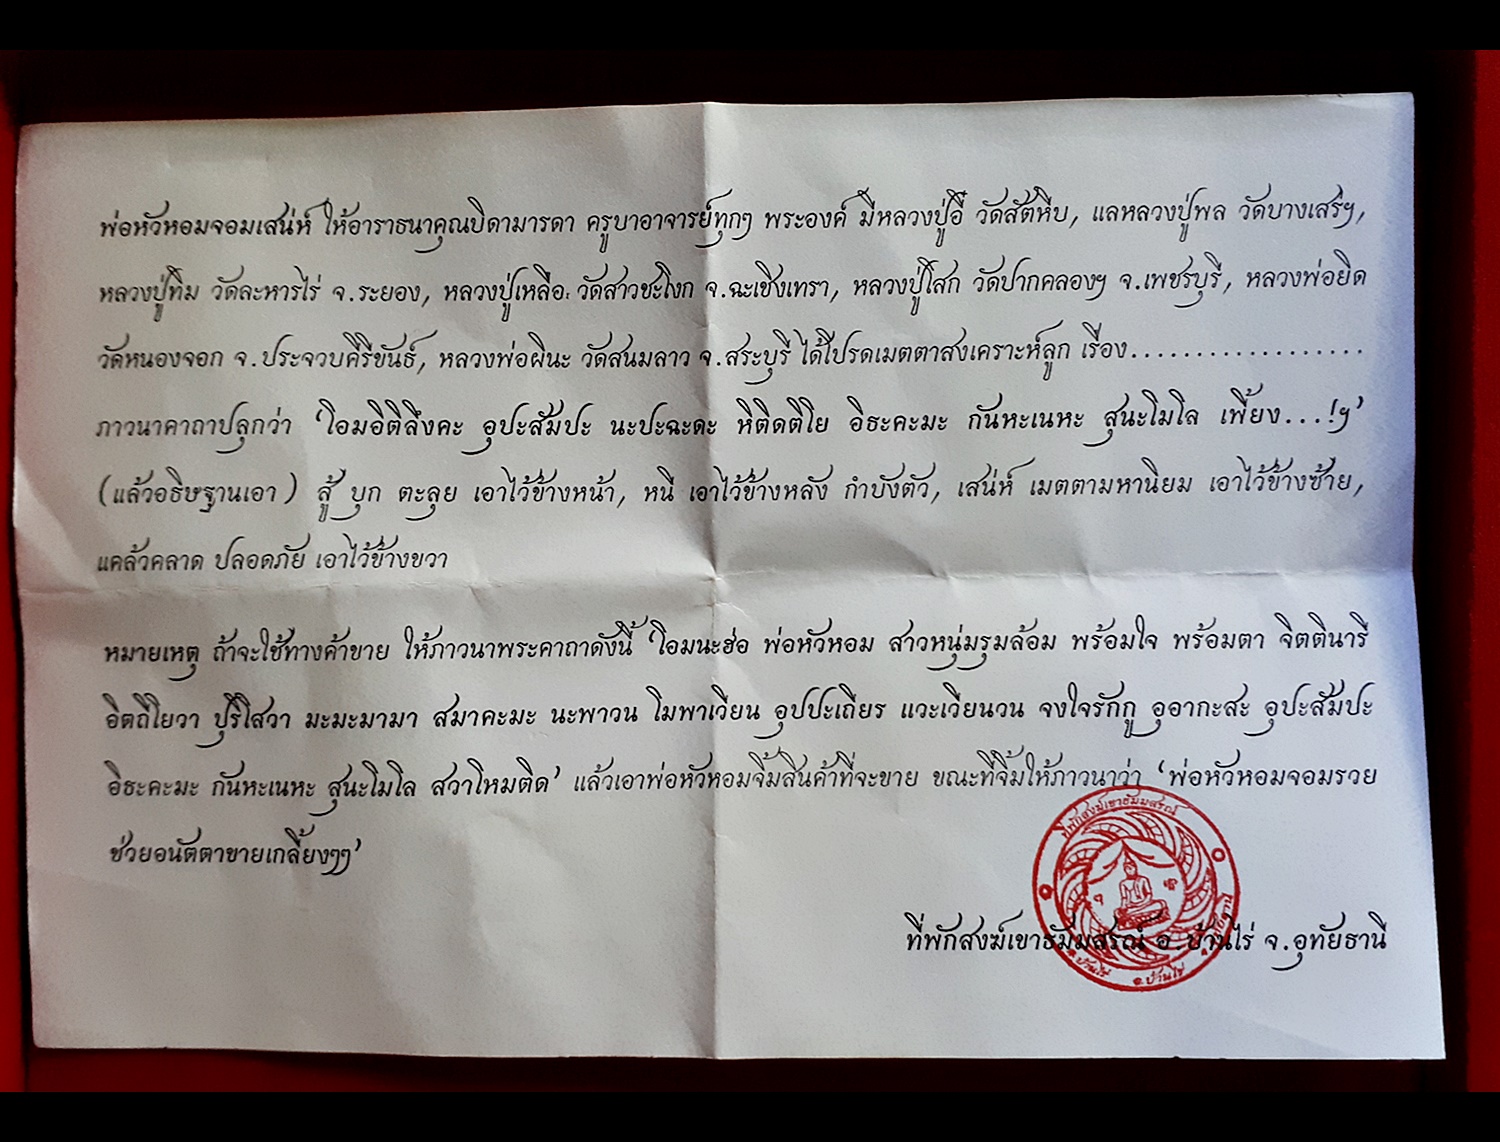 พ่อหัวหอมจอมเสน่ห์ ให้อาราธนาคุณบิดามารดา ครูบาอาจารย์ทุกๆ พระองค์ มีหลวงปู่อี๋ วัดสัตหีบ, แลหลวงปู่พล วัดบางเสร่ฯ,
หลวงปู่ทิม วัดละหารไร่ จ.ระยอง, หลวงปู่เหลือ วัดสาวชะโงก จ.ฉะเชิงเทรา, หลวงปู่โสก วัดปากคลองฯ จ.เพชรบุรี, หลวงพ่อยิด
วัดหนองจอก จ.ประจวบคีรีขันธ์, หลวงพ่อผินะ วัดสนมลาว จ.สระบุรี ได้โปรดเมตตาสงเคราะห์ลูก เรื่อง..................
ภาวนาคาถาปลุกว่า ‘โอมอิติลึงคะ อุปะสัมปะ นะปะฉะดะ หิติดติโย อิธะคะมะ กันหะเนหะ สุนะโมโล เพี้ยง...!ฯ’
(แล้วอธิษฐานเอา) สู้ บุก ตะลุย เอาไว้ข้างหน้า, หนี เอาไว้ข้างหลัง กำบังตัว, เสน่ห์ เมตตามหานิยม เอาไว้ข้างซ้าย,
แคล้วคลาด ปลอดภัย เอาไว้ข้างขวา
หมายเหตุ ถ้าจะใช้ทางค้าขาย ให้ภาวนาพระคาถาดังนี้ ‘โอมนะฮ่อ พ่อหัวหอม สาวหนุ่มรุมล้อม พร้อมใจ พร้อมตา จิตตินารี
อิตถีโยวา ปุริโสวา มะมะมามา สมาคะมะ นะพาวน โมพาเวียน อุปปะเถียร แวะเวียนวน จงใจรักกู อุอากะสะ อุปะสัมปะ
อิธะคะมะ กันหะเนหะ สุนะโมโล สวาโหมติด’ แล้วเอาพ่อหัวหอมจิ้มสินค้าที่จะขาย ขณะที่จิ้มให้ภาวนาว่า ‘พ่อหัวหอมจอมรวย
ช่วยอนัตตาขายเกลี้ยงๆๆ’
ที่พักสงฆ์เขาธัมมสรณ์
ที่พักสงฆ์เขาธัมมสรณ์ อ.บ้านไร่ จ.อุทัยธานี
ต.บ้านไร่ อ.บ้านไร่